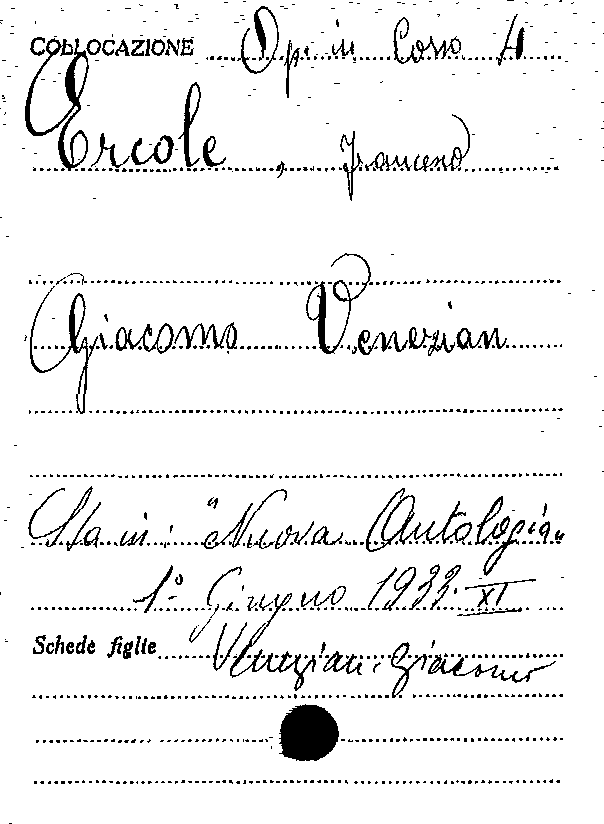 COLLOCAZIONE Op. in Corso 4
Ercole, Francesco
Giacomo Venezian
Sta in: "Nuova Antologia"
1° Giugno 1933. XI
Schede figlie Venezian. Giacomo